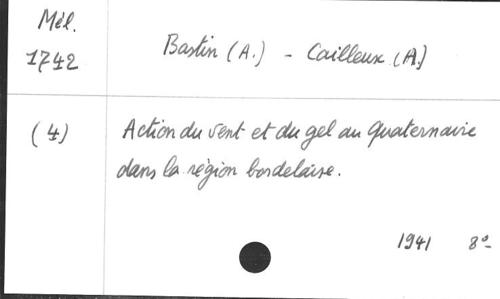 Mél.
1742
Bastin (A.) - Cailleux (A.)
(4)
Action du vent et du gel au Quaternaire
dans la région bordelaise.
1941 8º